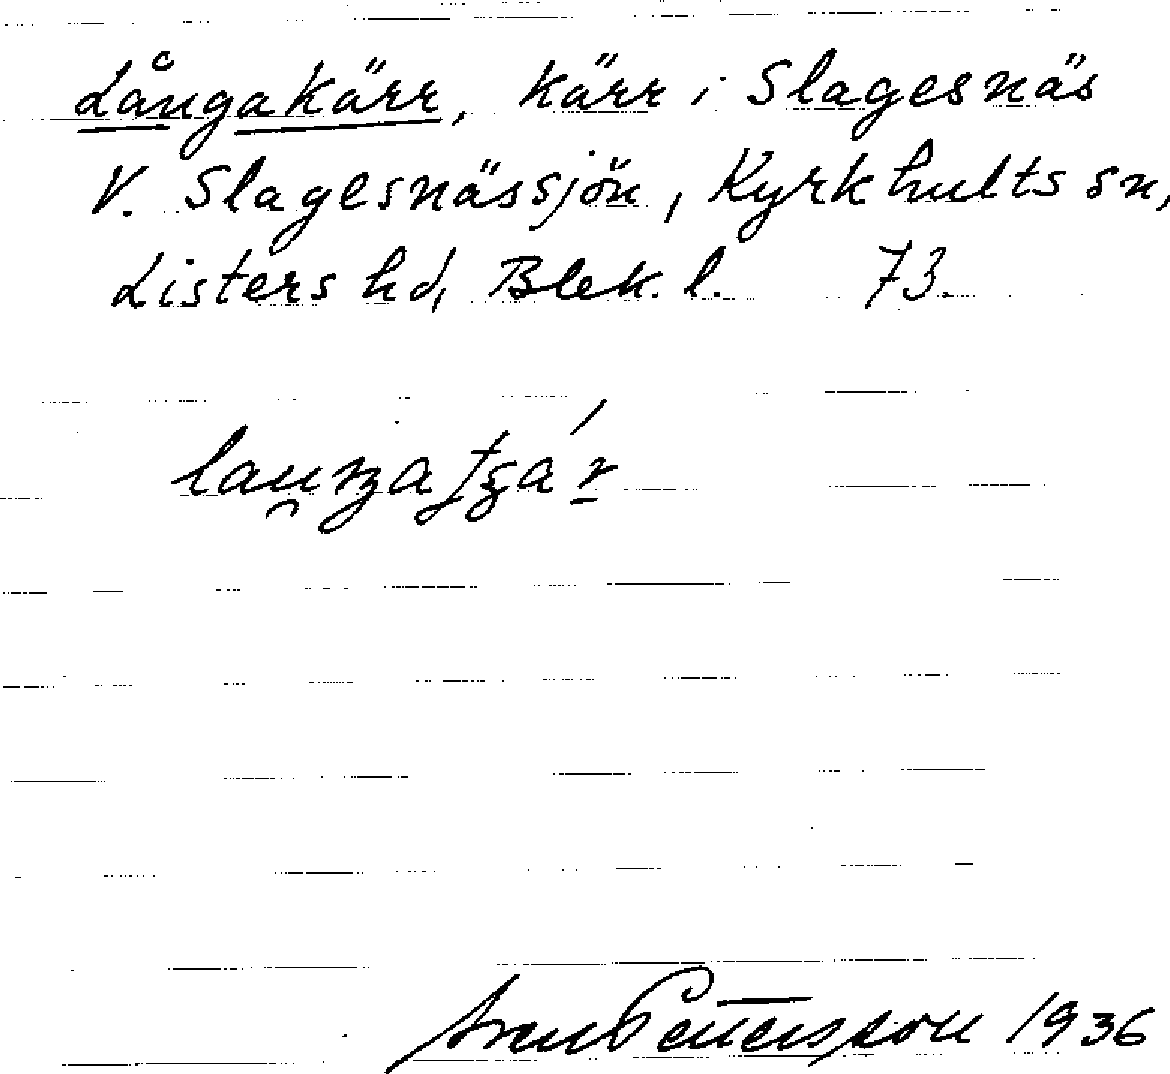 Långakärr, kärr i Slagesnäs
V. Slagesnässjön, Kyrkhults sn,
Listers hd, Blek. l. 73.
Pettersson 1936